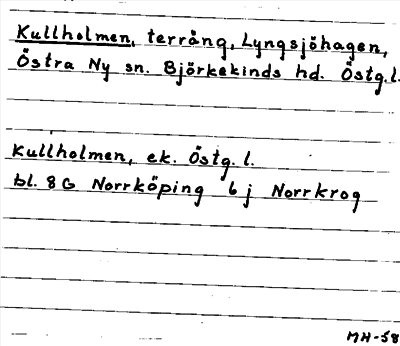 Kullholmen, terräng, Lyngsjöhagen,
Östra Ny sn. Björkekinds hd. Östg.l.
Kullholmen, ek. Östg. l.
bl. 8G Norrköping 6 j Norrkrog
MH-58